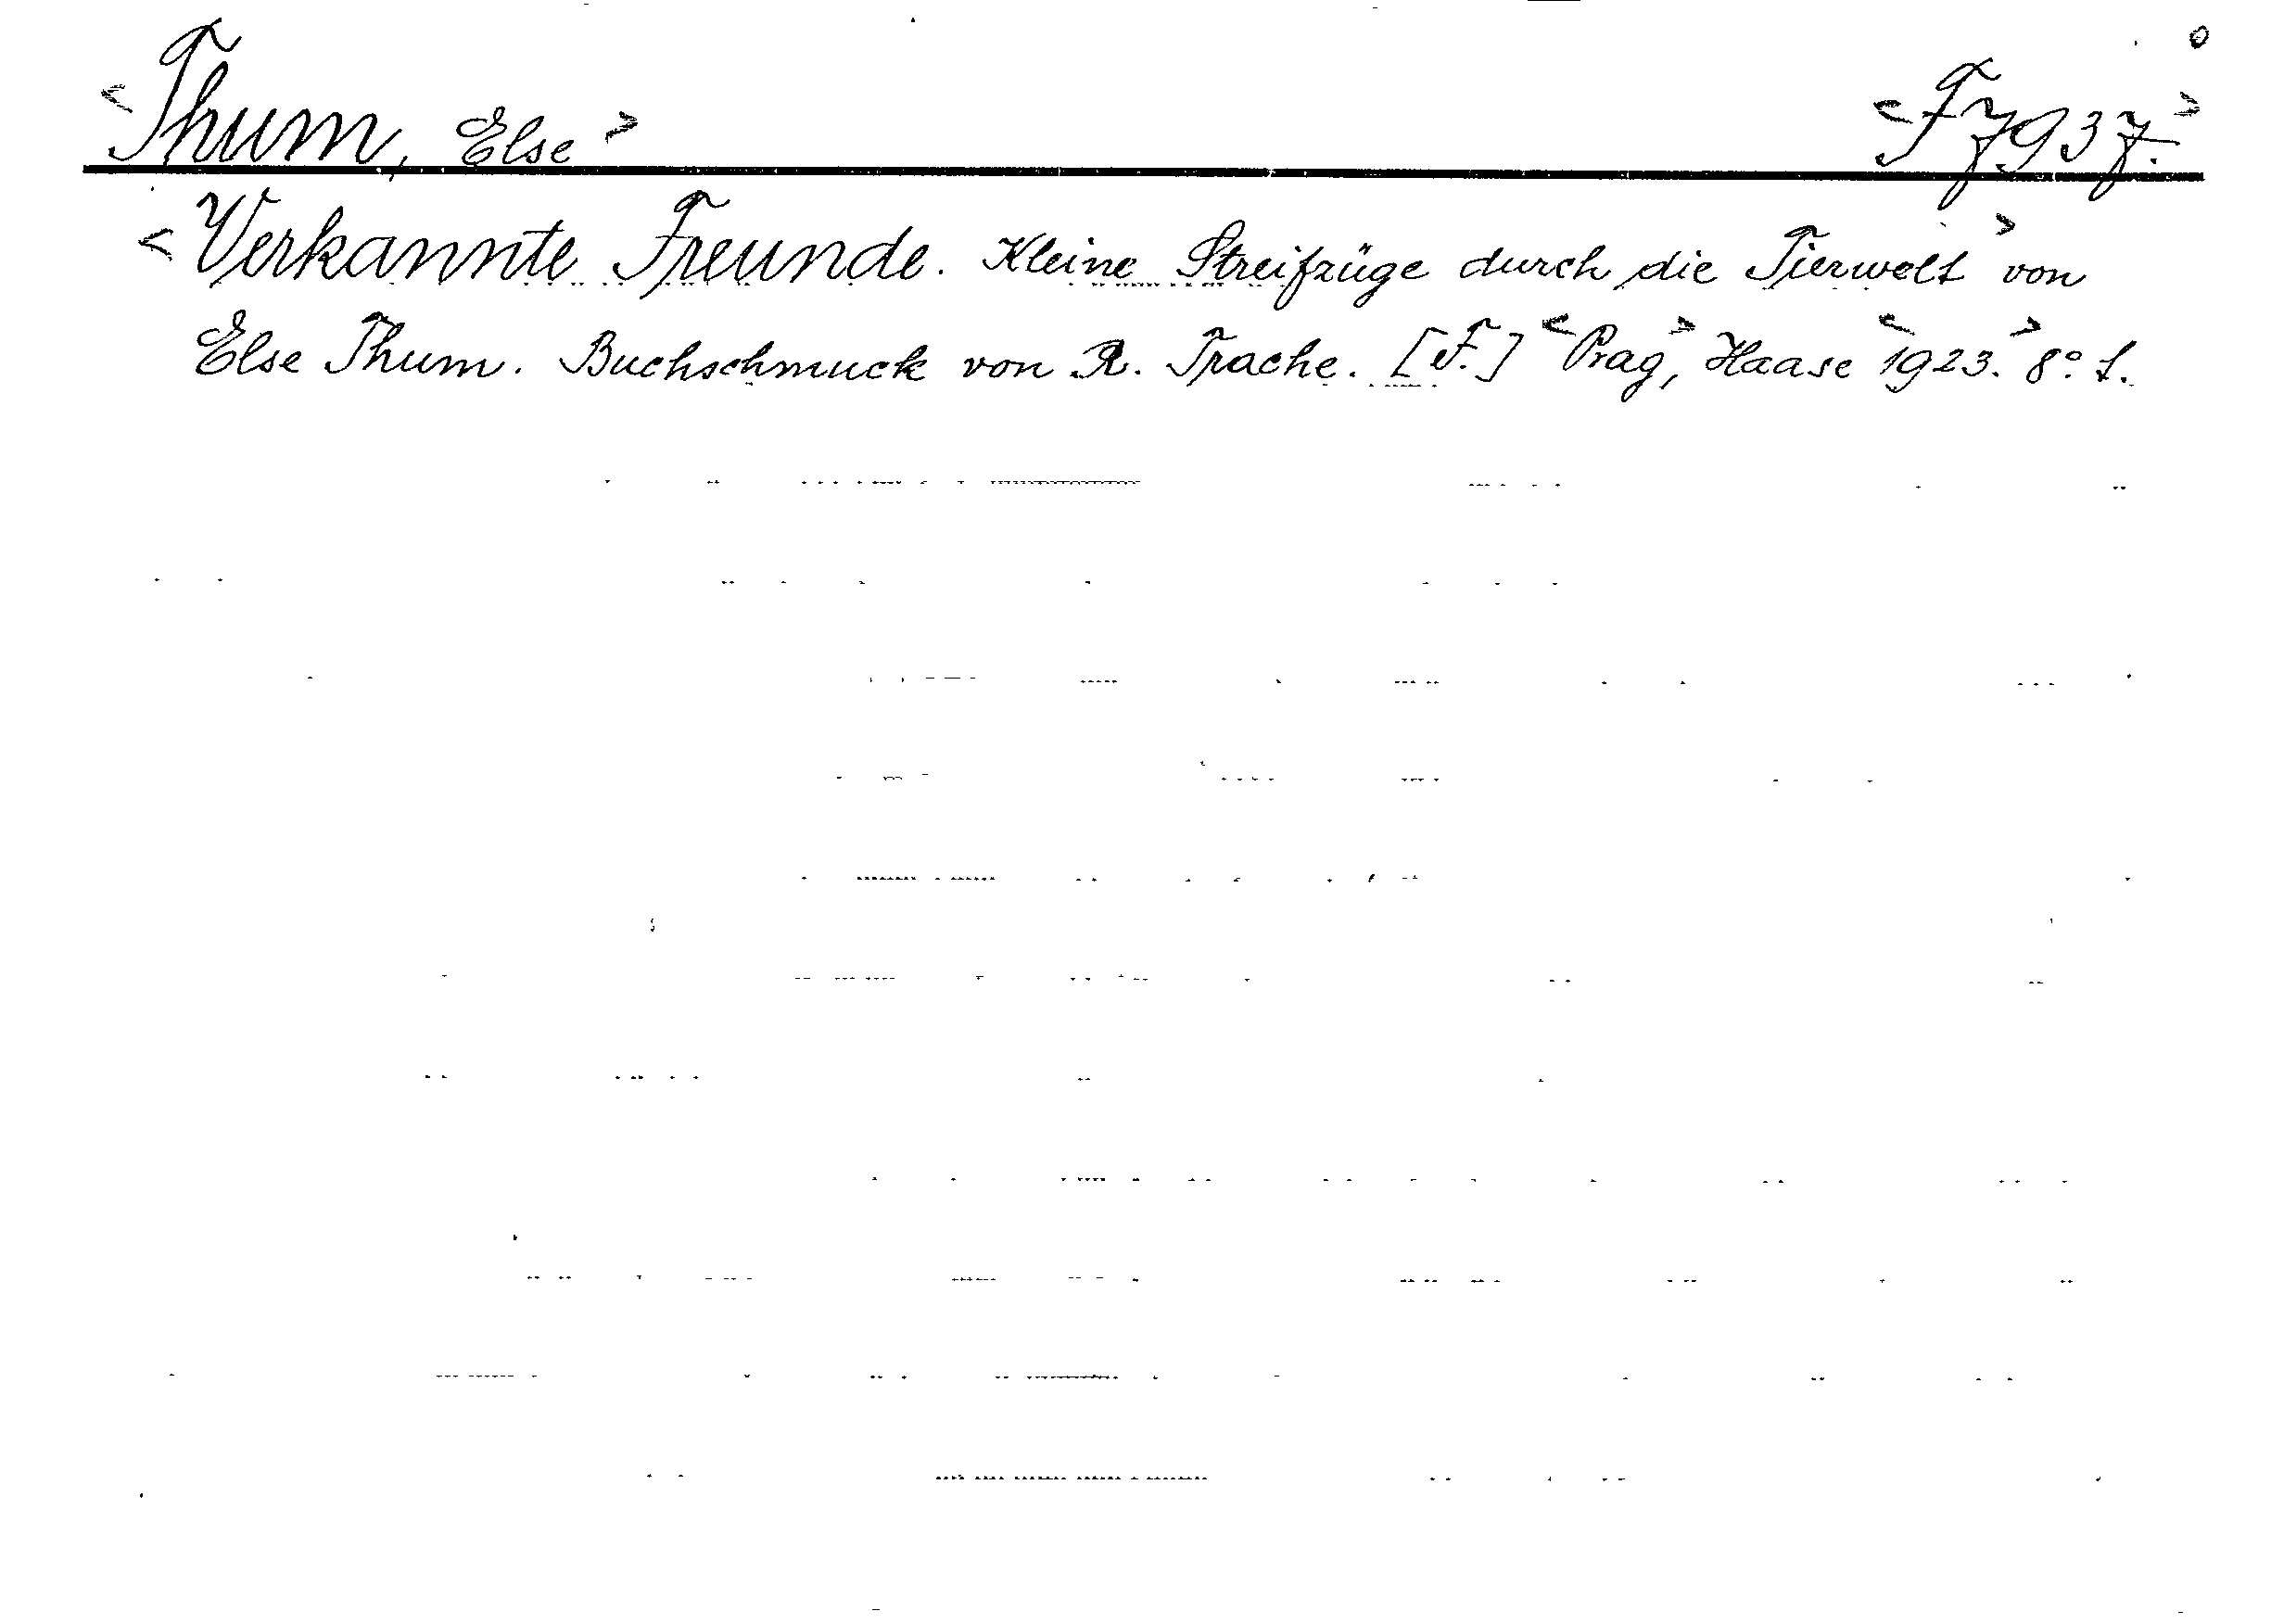 <Thum, Else> <F 7937.>
<Verkannte Freunde. Kleine Streifzüge durch die Tierwelt> von
Else Thum. Buchschmuck von R. Trache. [F.] <Prag,> Haase <1923.> 8° f.